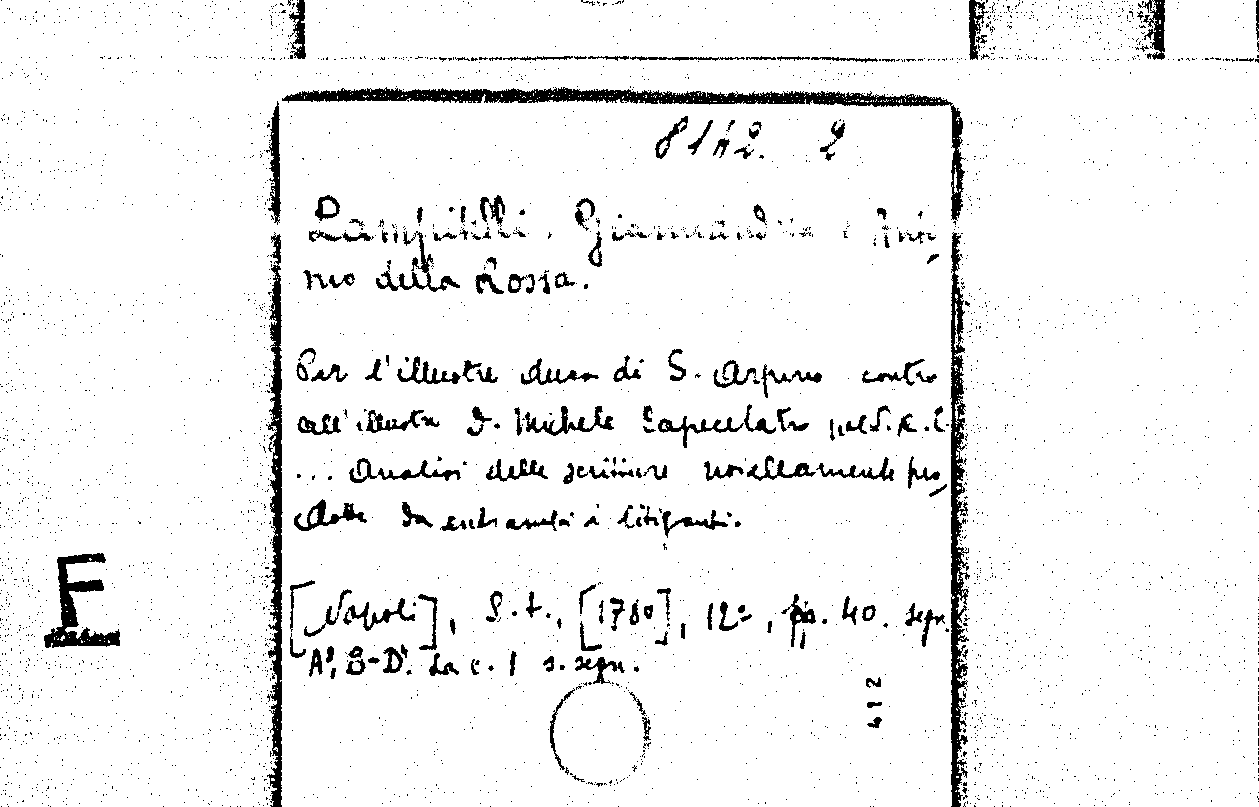 8142. 2
Lampitelli. Giannandrea e Anto
nio della Rossa.
Per l'illustre duca di S. Arpino contro
all'illustre D. Michele Capecelatro nel S.R.C.
... Analisi delle scritture novellamente pro
dotte da entrambi i litiganti.
[Napoli], S.t., [1780], 12°, pp. 40. segn.
A⁸, B-D⁴. La c. 1 s. segn.
412
F